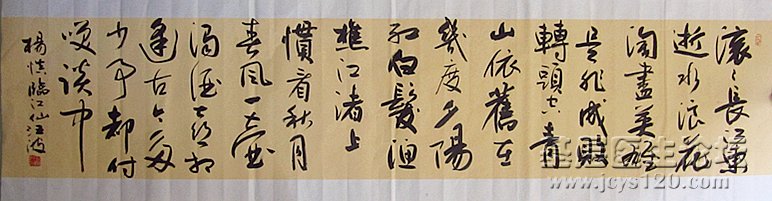 滚〻長江東
逝水浪花
淘盡英雄
是非成敗
轉頭空青
山依舊在
幾度夕陽
紅白髮漁
樵江渚上
慣看秋月
春風一壺
濁酒喜相
逢古今多
少事都付
笑談中
楊慎臨江仙 波
医生论坛
www.jcys120.com